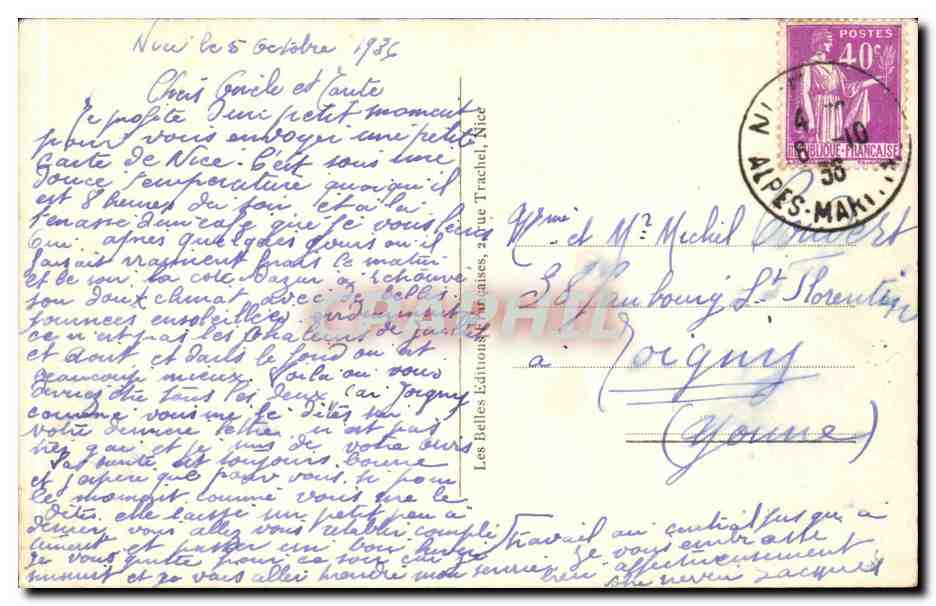 Nice le 5 Octobre 1936
Chers Oncle et Tante
Je profite d'un petit moment
pour vous envoyer une petite
carte de Nice. C'est sous une
douce température quoiqu'il
est 8 heures du soir et à la
terrasse d'un café que je vous écris
Oui après quelques jours où il
faisait vraiment frais le matin
et le soir la cote d'azur a retrouvé
son doux climat avec de belles
journées ensoleillées
ce n'est pas les chaleurs de juillet
et Aout et dans le fond on est
beaucoup mieux Voilà où vous
devriez être tous les deux car Joigny
comme vous me le dites sur
votre dernière lettre n'est pas
très gai et je suis de votre avis
Ma santé est toujours bonne
et j'espère que pour vous si pour
le moment comme vous me le
dites elle laisse un petit peu à
désirer vous allez vous rétablir complè
tement et passer un bon hiver
Je vous quitte pour ce soir car
minuit et je vais aller prendre mon service
Travail au central jusqu'à
Je vous embrasse
bien affectueusement
Votre neveu Jacques
Les Belles Editions Françaises, 2, rue Trachel, Nice
POSTES
40c
REPUBLIQUE-FRANÇAISE
6 -10
36
ALPES-MARITIMES
Mme et Mr Michel
38 Faubourg St Florentin
à Joigny
(Yonne)
CPAPHIL